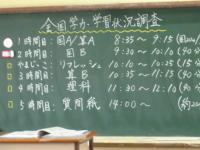 全国学力・学習状況調査
1時間目：国A/算A 8:35～9:15
2時間目：国B 9:30～10:10 (40分
やまじこ：リフレッシュ 10:10～10:35 (25分
3時間目：算B 10:35～11:15 (40分
4時間目：理科 11:35～12:15 (40分
5時間目：質問紙 14:00～ (約20